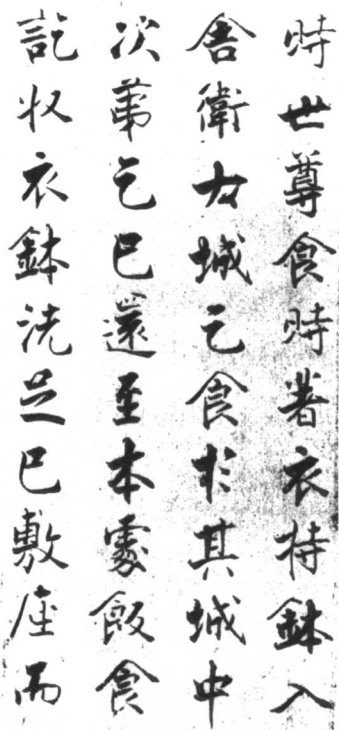 時世尊食時著衣持鉢入
舍衛大城乞食於其城中
次苐乞已還至本處飯食
訖收衣鉢洗足已敷座而